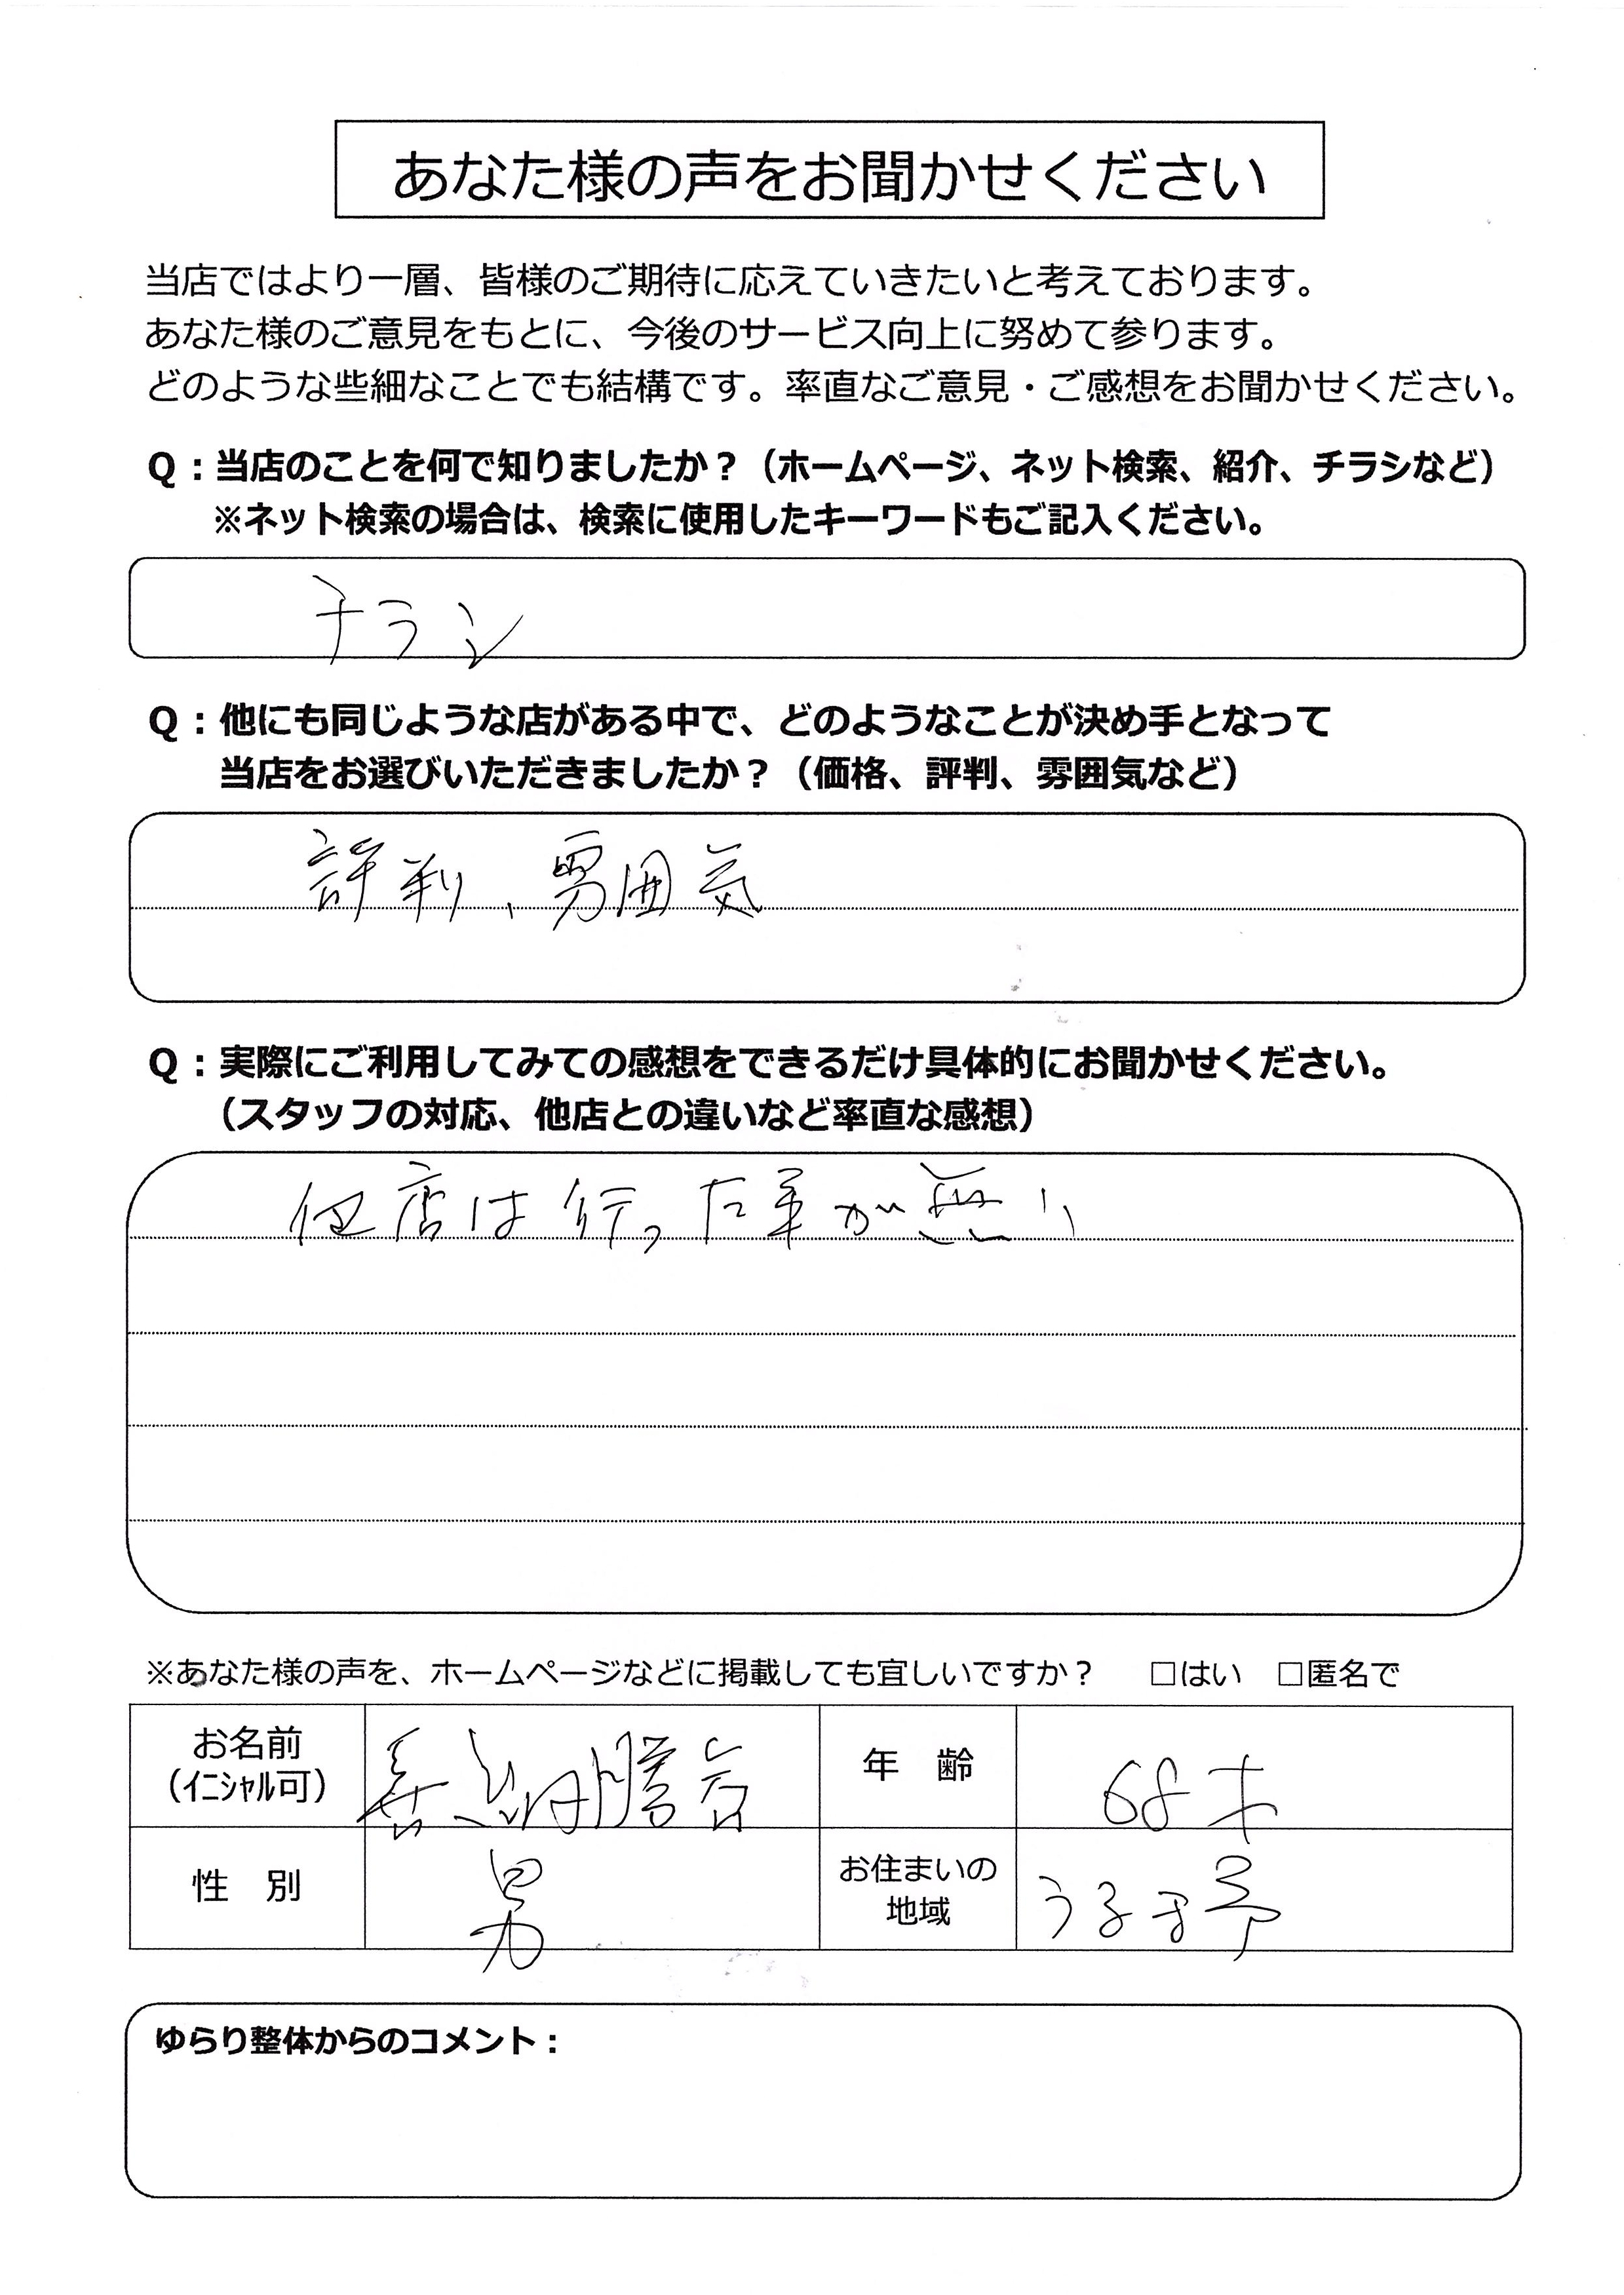 あなた様の声をお聞かせください
当店ではより一層、皆様のご期待に応えていきたいと考えております。
あなた様のご意見をもとに、今後のサービス向上に努めて参ります。
どのような些細なことでも結構です。率直なご意見・ご感想をお聞かせください。
Q：当店のことを何で知りましたか？（ホームページ、ネット検索、紹介、チラシなど）
※ネット検索の場合は、検索に使用したキーワードもご記入ください。
チラシ
Q：他にも同じような店がある中で、どのようなことが決め手となって
当店をお選びいただきましたか？（価格、評判、雰囲気など）
評判、雰囲気
Q：実際にご利用してみての感想をできるだけ具体的にお聞かせください。
（スタッフの対応、他店との違いなど率直な感想）
他店は行った事が無い
※あなた様の声を、ホームページなどに掲載しても宜しいですか？ □はい □匿名で
お名前
（ｲﾆｼｬﾙ可）
年 齢 68才
性 別 男
お住まいの
地域
ゆらり整体からのコメント：